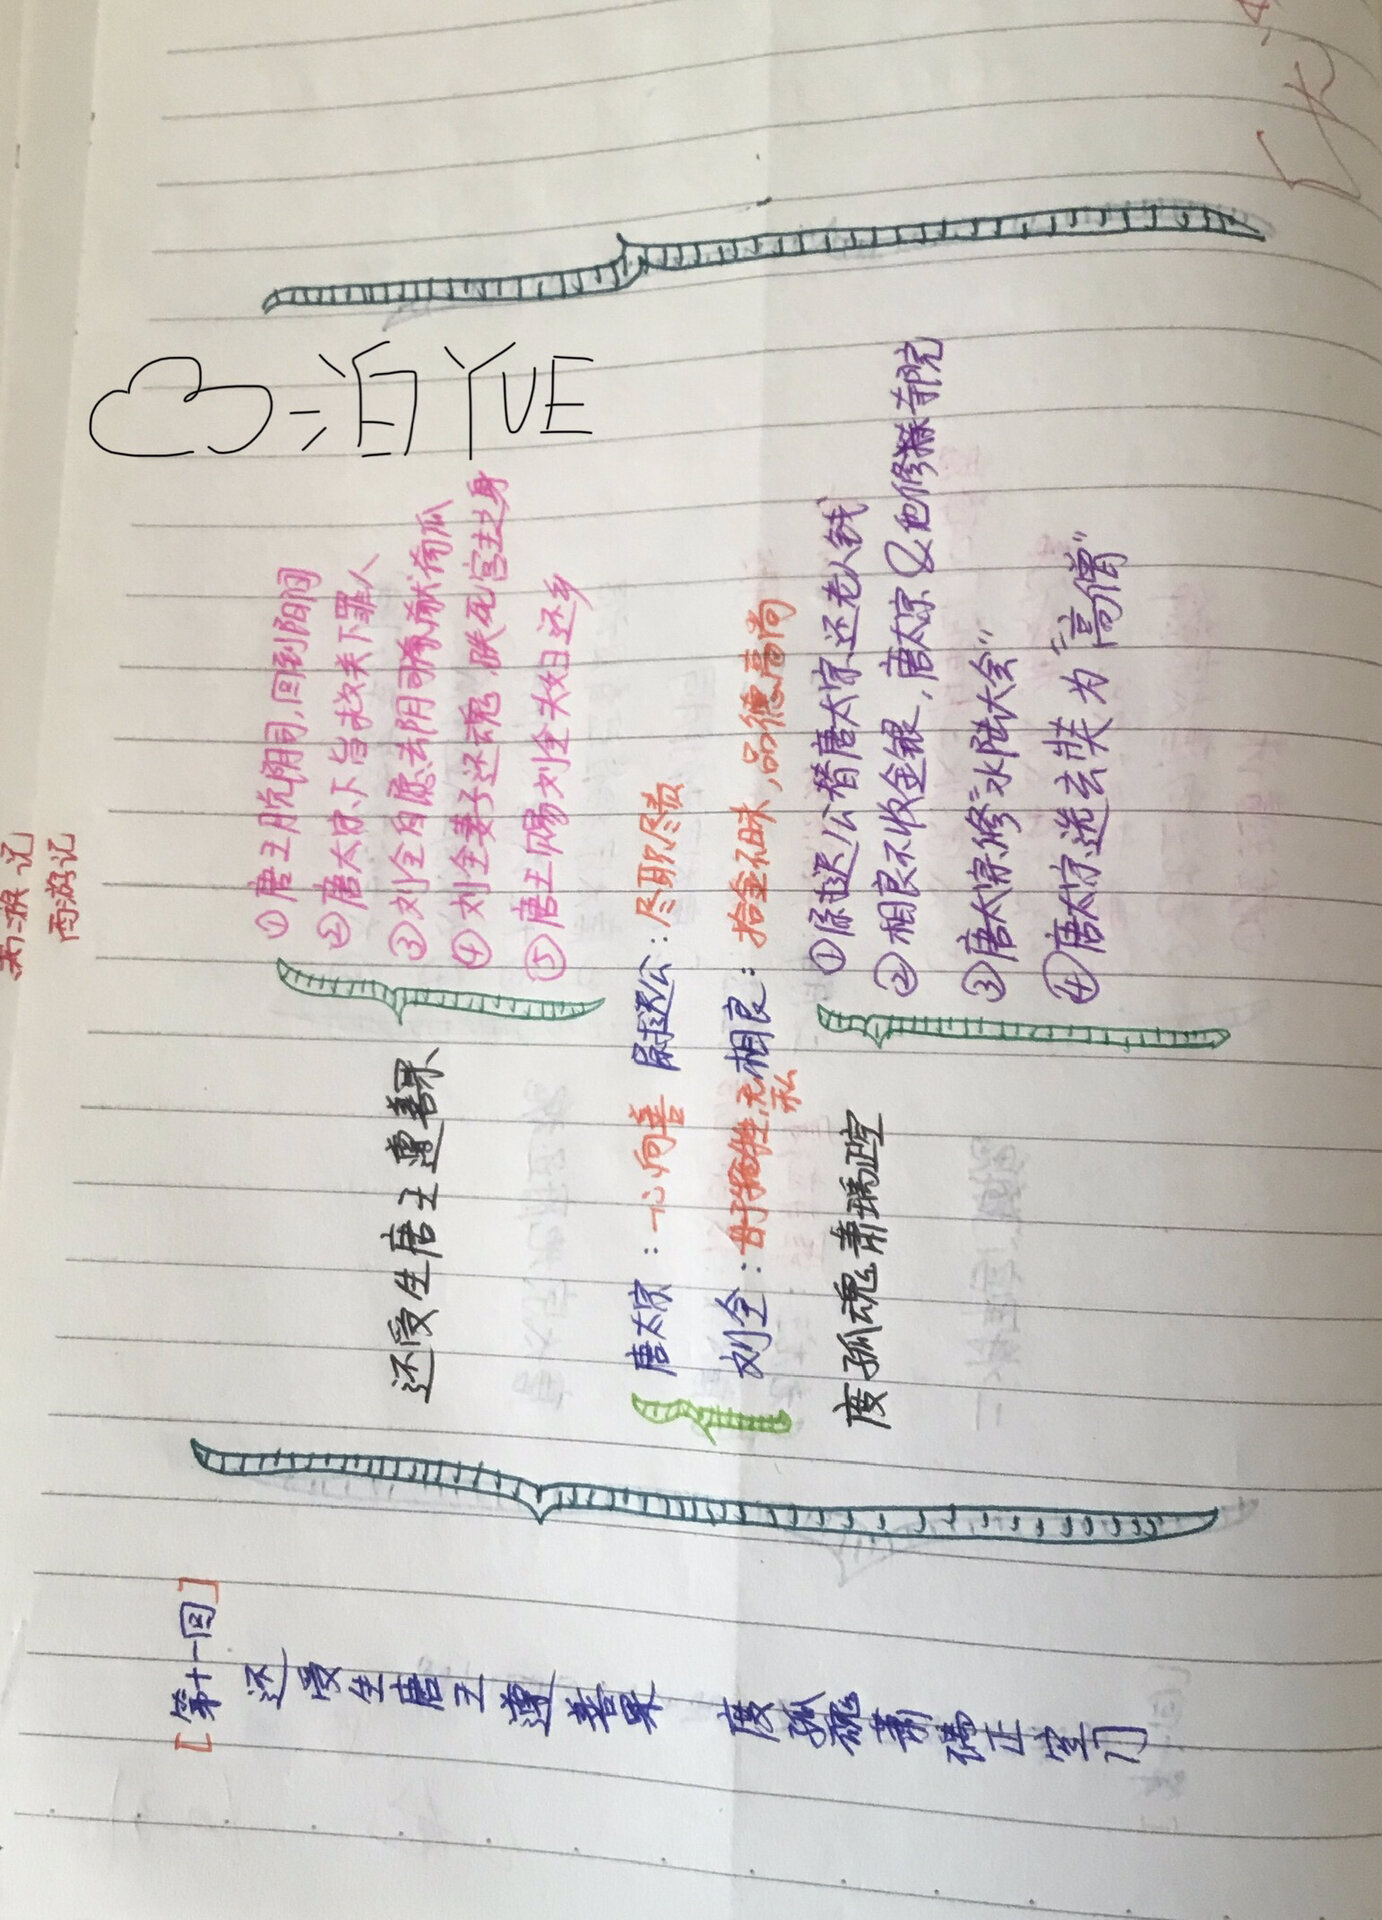 西游记
西游记
[第十一回]
还受生唐王遵善果 度孤魂萧瑀正空门
还受生唐王遵善果
①唐王脱阴司,回到阳间
②唐太宗下旨赦天下罪人
③刘全自愿去阴司献南瓜
④刘全妻子还魂,附死宫主之身
⑤唐王赐刘全夫妇还乡
唐太宗:一心向善 尉迟公:尽职尽责
刘全:甘于牺牲,无私 相良:拾金不昧,品德高尚
度孤魂萧瑀正空
①尉迟公替唐太宗还老人钱
②相良不收金银,唐太宗以他修葺寺院
③唐太宗修"水陆大会"
④唐太宗选玄奘为"高僧"
YUE